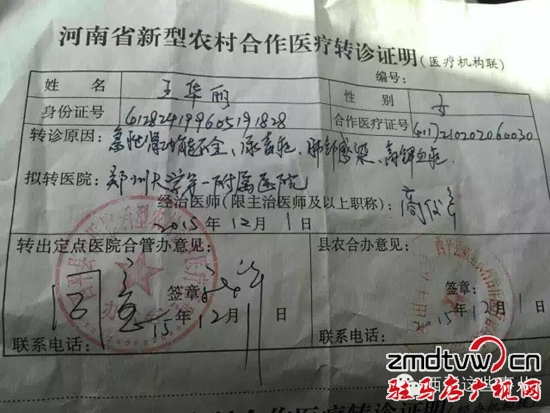 河南省新型农村合作医疗转诊证明(医疗机构联)
编号:
姓名 王华丽 性别 女
身份证号 合作医疗证号
转诊原因: 急性肾功能不全、尿毒症、肺部感染、高钾血症
拟转医院: 郑州大学第一附属医院
经治医师(限主治医师及以上职称):
2015年12月1日
转出定点医院合管办意见: 县农合办意见:
签章: 签章:
15年12月1日 2015年12月1日
联系电话: 联系电话:
zmdtvw.cn
驻马店广视网